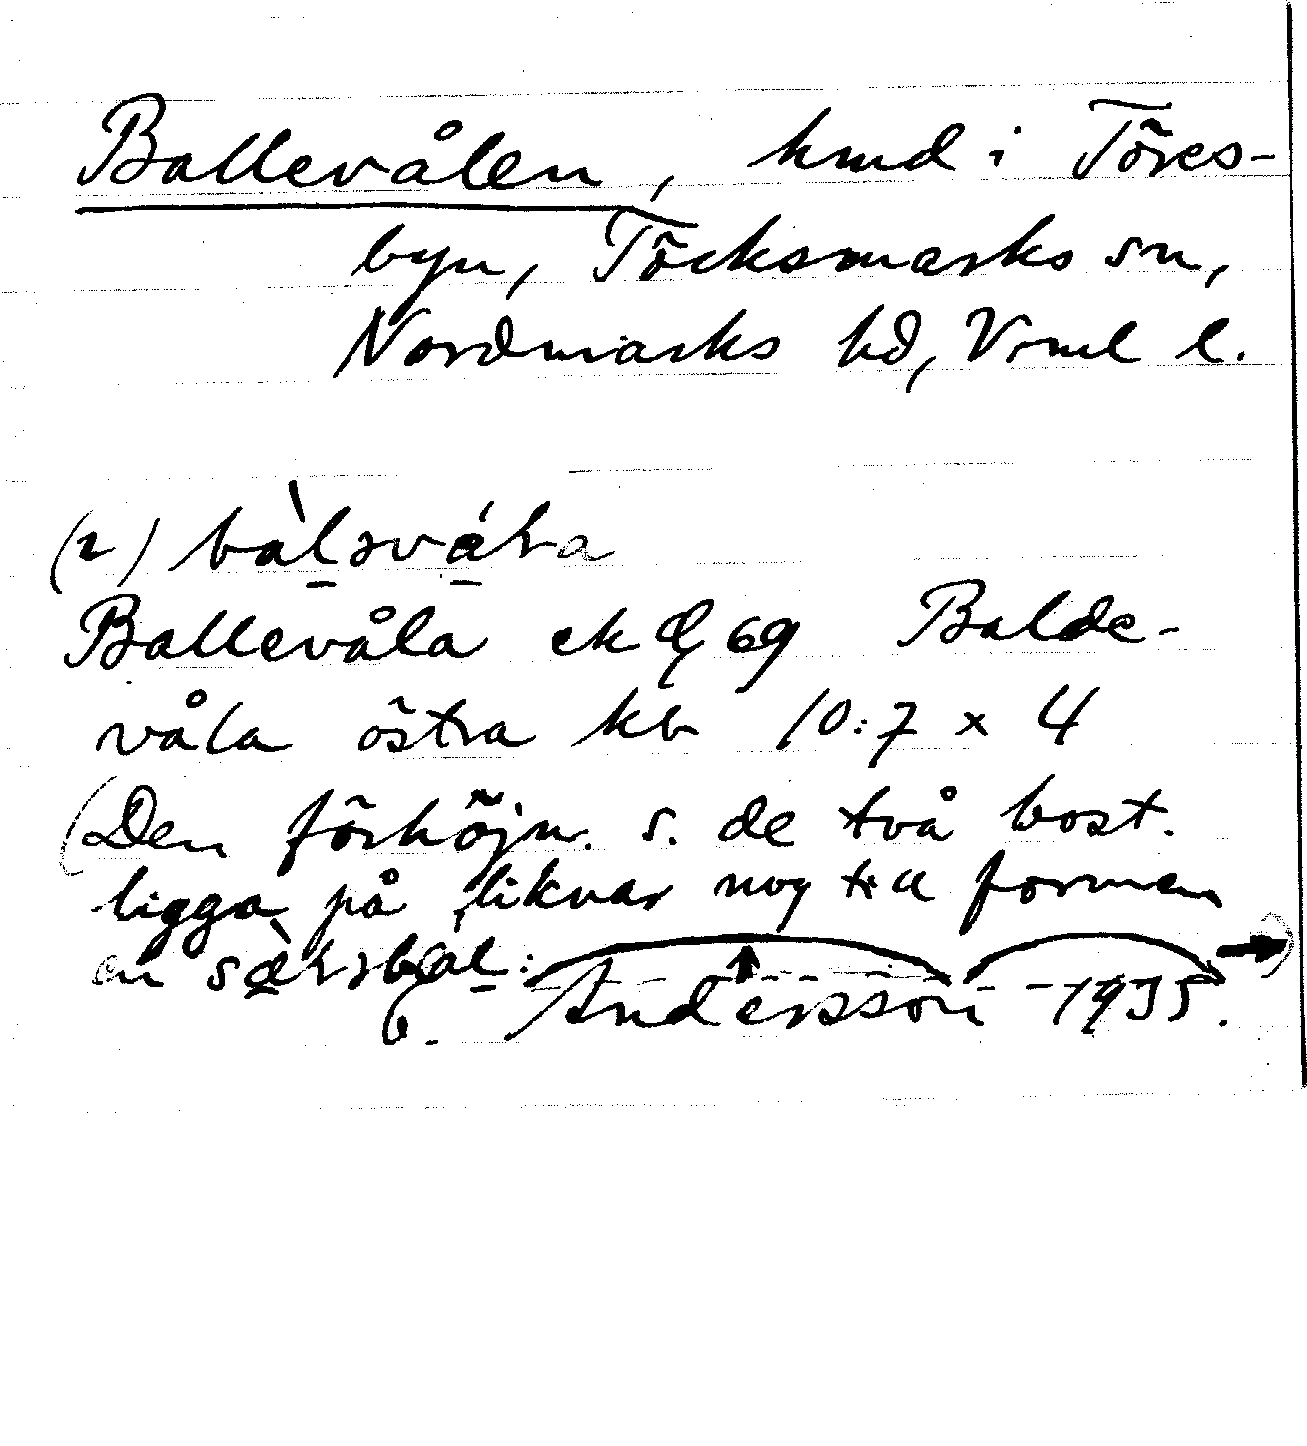 Ballevålen, hmd i Töres-
byn, Töcksmarks sn,
Nordmarks hd, Vrml l.
(2)
Ballevåla ek 69 Balde-
våla östra kb 10:7 x 4
(Den förhöjn. s. de två bost.
ligga på, liknar nog till formen
en
Andersson 1935.